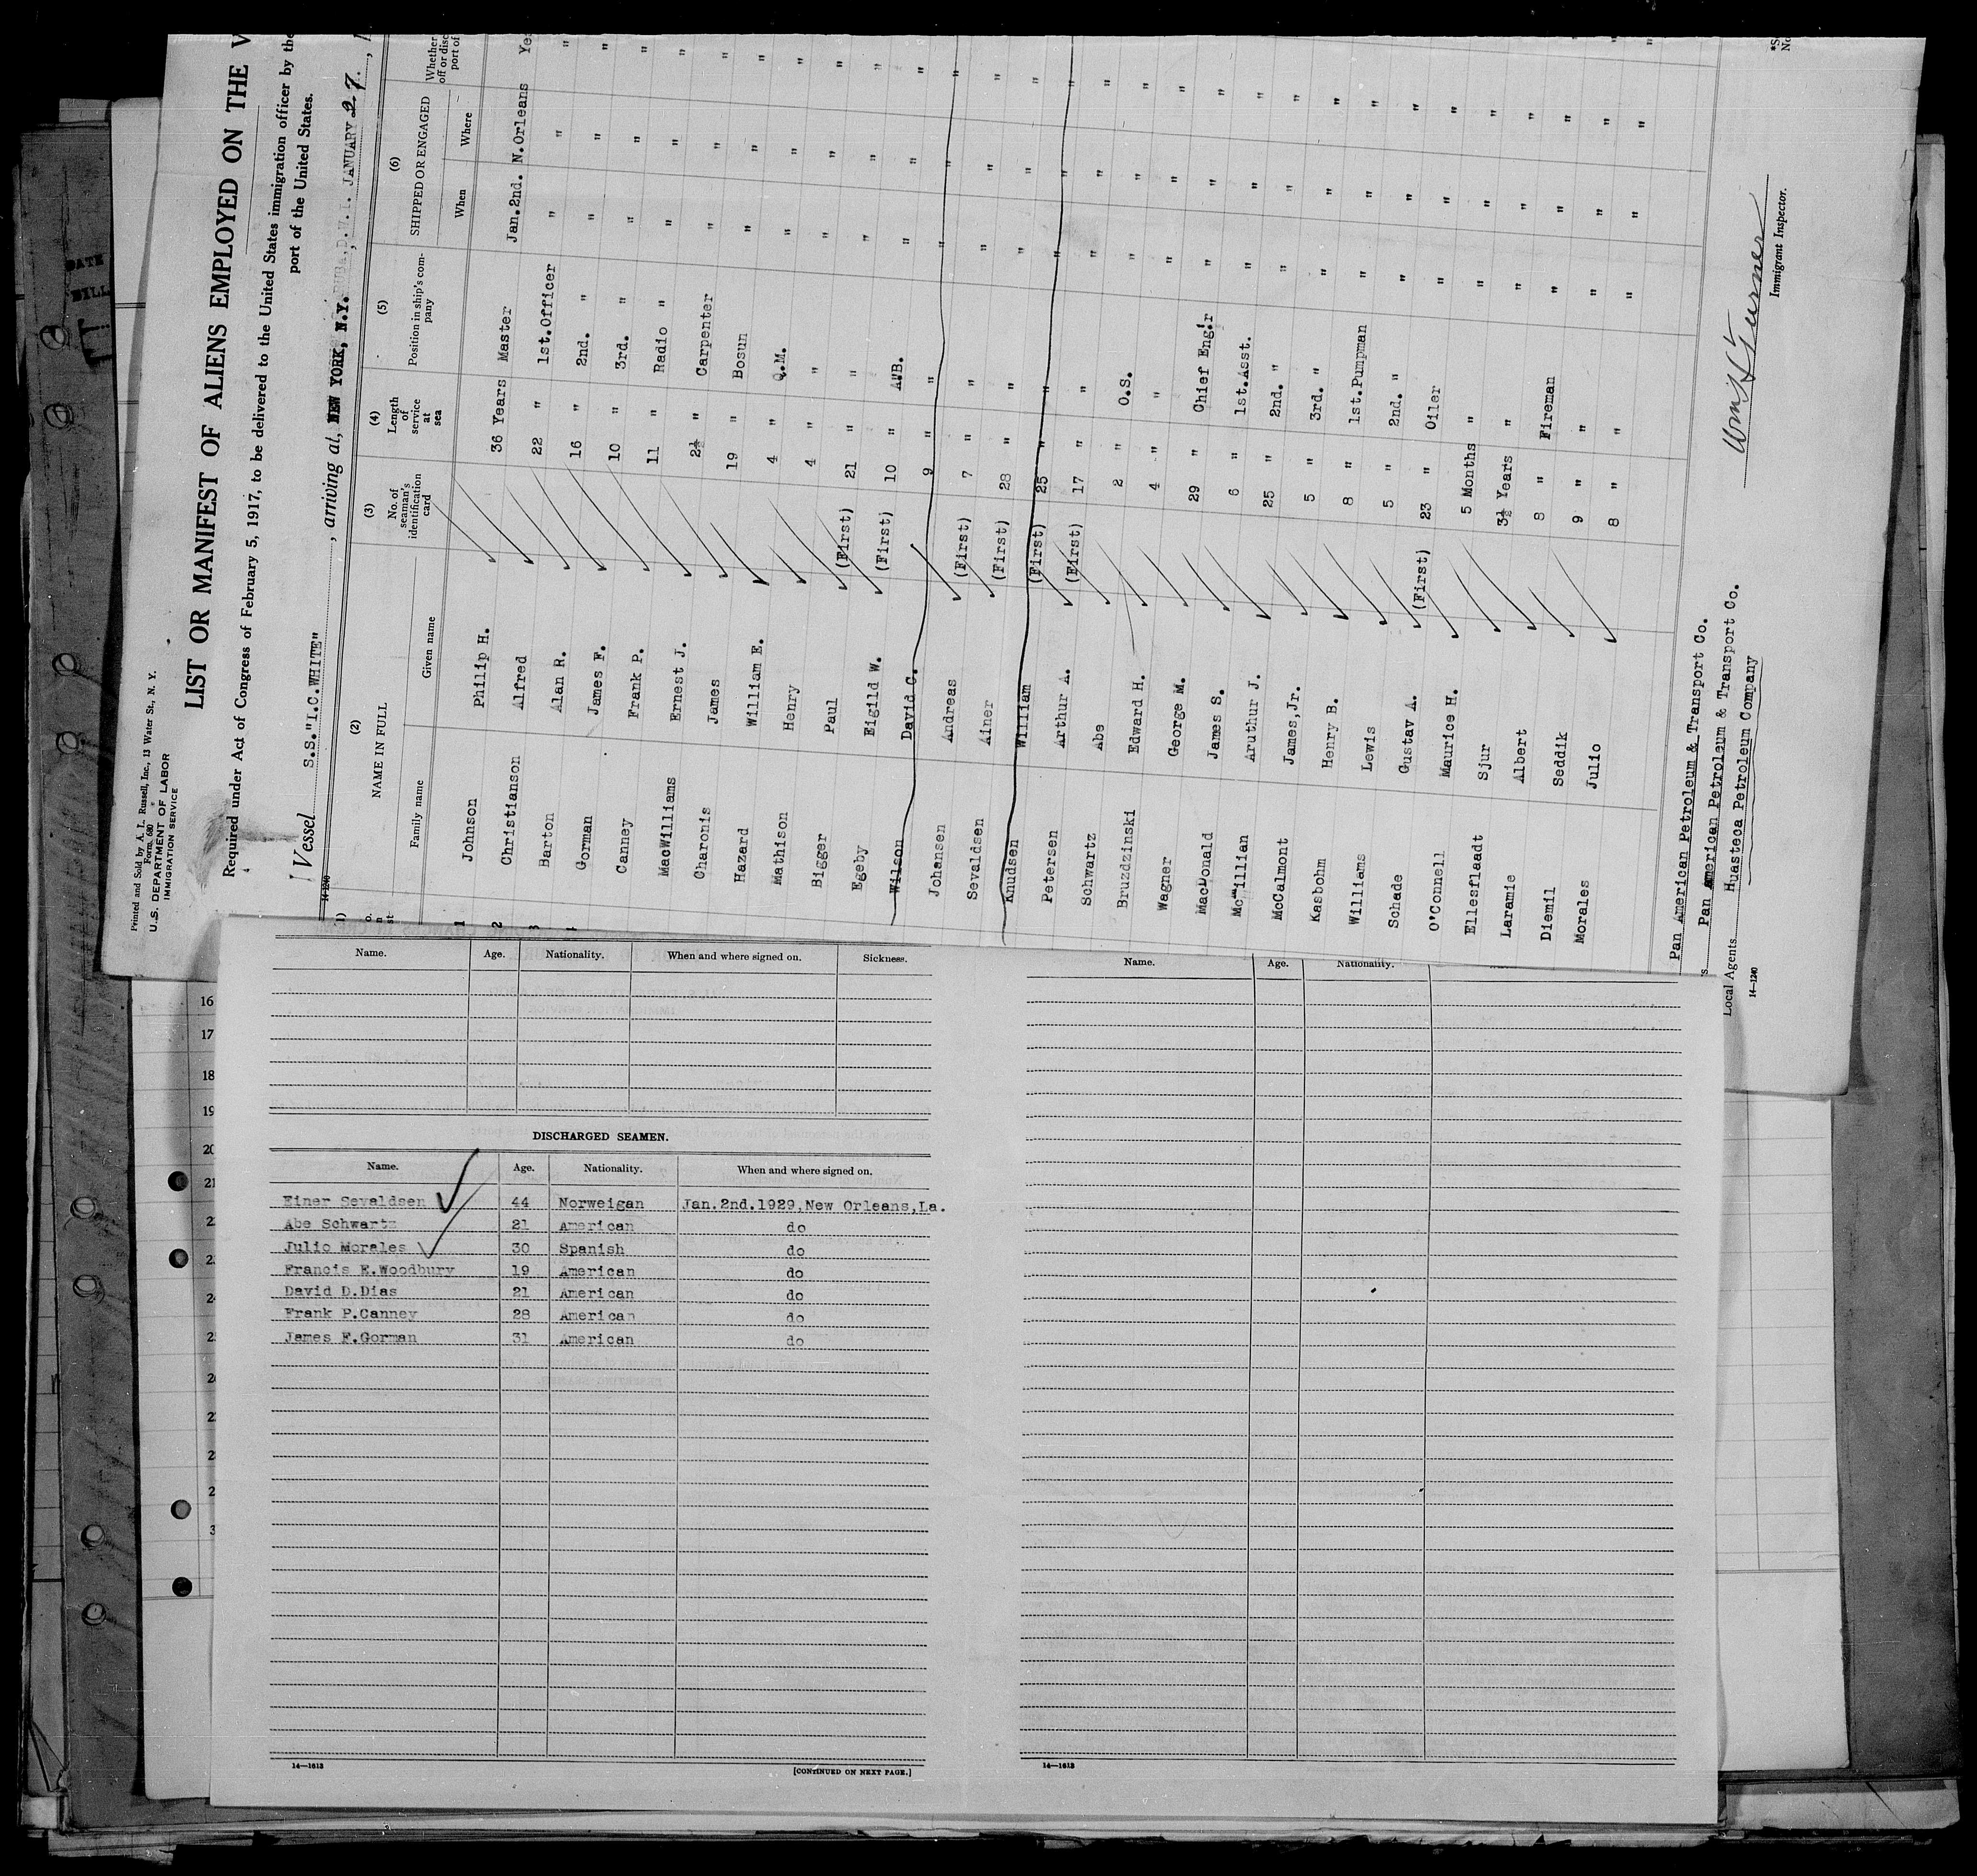 Printed and Sold by A. L. Russell, Inc., 13 Water St., N. Y.
Form 680
U.S. DEPARTMENT OF LABOR
IMMIGRATION SERVICE
LIST OR MANIFEST OF ALIENS EMPLOYED ON THE V
Required under Act of Congress of February 5, 1917, to be delivered to the United States immigration officer by the
port of the United States.
Vessel S.S."I.C.WHITE", arriving at, NEW YORK, N.Y. D.W.I. JANUARY 27.
14-1240
(1) (2) (3) (4) (5) (6)
NAME IN FULL No. of seaman's identification card Length of service at sea Position in ship's company SHIPPED OR ENGAGED Whether
Family name Given name When Where
1 Johnson Philip H. 36 Years Master Jan.2nd. N.Orleans Yes
2 Christianson Alfred 22 " 1st.Officer " " "
3 Barton Alan R. 16 " 2nd. " " " "
4 Gorman James F. 10 " 3rd. " " " "
Canney Frank P. 11 " Radio " " " "
MacWilliams Ernest J. 2½ " Carpenter " " "
Charonis James 19 " Bosun " " "
Hazard William E. 4 " Q.M. " " "
Mathison Henry 4 " " " " "
Bigger Paul (First) 21 " " " " "
Egeby Eigild W. (First) 10 " A.B. " " "
Wilson David C. 9 " " " " "
Johansen Andreas (First) 7 " " " " "
Sevaldsen Ainer (First) 28 " " " " "
Knudsen William (First) 25 " " " " "
Petersen Arthur A. (First) 17 " " " " "
Schwartz Abe 2 " O.S. " " "
Bruzdzinski Edward H. 4 " " " " "
Wagner George M. 29 " Chief Eng'r " " "
MacDonald James S. 6 " 1st.Asst. " " "
McMillian Aruthur J. 25 " 2nd. " " " "
McCalmont James,Jr. 5 " 3rd. " " " "
Kasbohm Henry B. 8 " 1st.Pumpman " " "
Williams Lewis 5 " 2nd. " " " "
Schade Gustav A. (First) 23 " Oiler " " "
O'Connell Maurice H. 5 Months " " " "
Ellesflaadt Sjur 3½ Years " " " "
Laramie Albert 8 " Fireman " " "
Diemil Seddik 9 " " " " "
Morales Julio 8 " " " " "
Pan American Petroleum & Transport Co.
Pan American Petroleum & Transport Co.
Local Agents Huasteca Petroleum Company
14-1240
Wm H Turner
Immigrant Inspector.
Name. Age. Nationality. When and where signed on. Sickness.
DISCHARGED SEAMEN.
Name. Age. Nationality. When and where signed on.
Einer Sevaldsen 44 Norweigan Jan.2nd.1929,New Orleans,La.
Abe Schwartz 21 American do
Julio Morales 30 Spanish do
Francis E.Woodbury 19 American do
David D.Dias 21 American do
Frank P.Canney 28 American do
James F.Gorman 31 American do
14—1613
[CONTINUED ON NEXT PAGE.]
Name. Age. Nationality.
14—1613
16
17
18
19
20
21